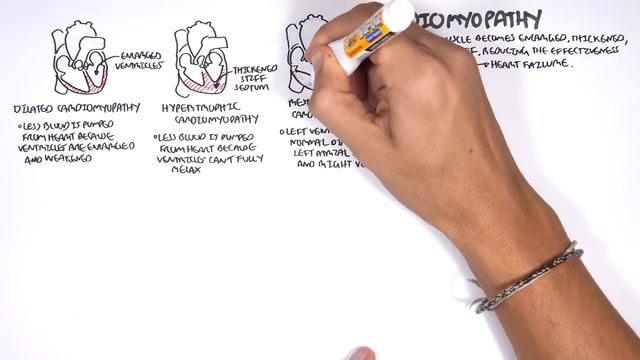 DIOMYOPATHY
USCLE BECOMES ENLARGED, THICKENED,
FF, REDUCING THE EFFECTIVENESS
→ HEART FAILURE.
ENLARGED
VENTRICLES
DILATED CARDIOMYOPATHY
•LESS BLOOD IS PUMPED
FROM HEART BECAUSE
VENTRICLES ARE ENLARGED
AND WEAKENED
THICKENED
STIFF
SEPTUM
HYPERTROPHIC
CARDIOMYOPATHY
•LESS BLOOD IS PUMPED
FROM HEART BECAUSE
VENTRICLES CAN'T FULLY
RELAX
RE
CA
•LEFT VEN
NORMAL
LEFT ATRIAL
AND RIGHT VE